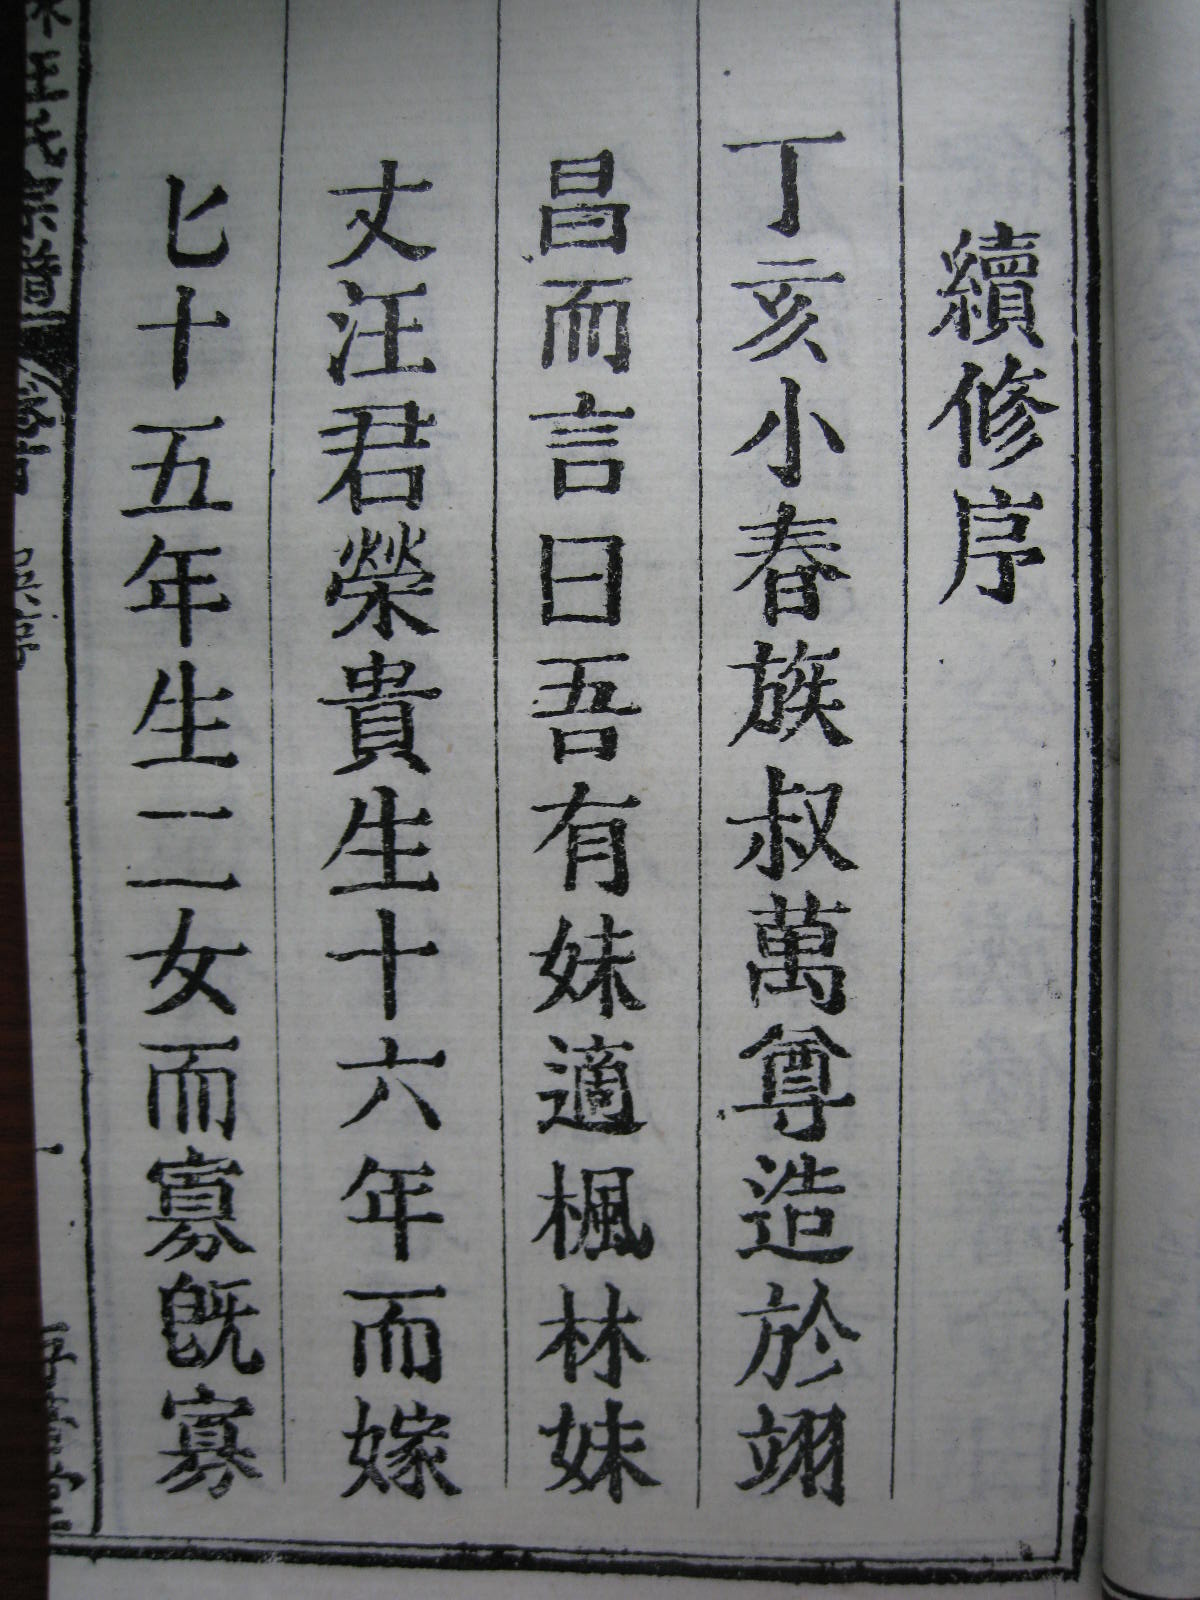 續修序
丁亥小春族叔萬尊造於翊
昌而言曰吾有妹適楓林妹
丈汪君榮貴生十六年而嫁
七十五年生二女而寡既寡
王氏宗譜